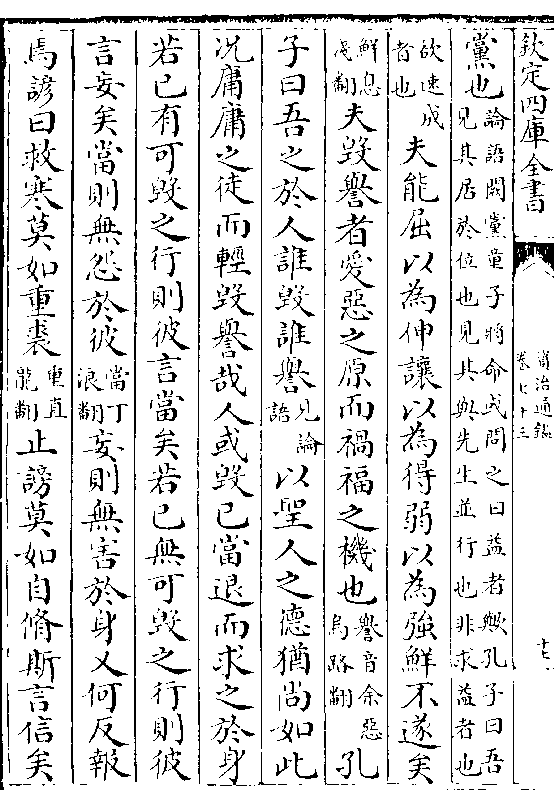 欽定四庫全書
資治通鑑
卷七十三
十七
黨也論語闕黨童子將命或問之曰益者歟孔子曰吾見其居於位也見其與先生並行也非求益者也
欲速成者也夫能屈以為伸讓以為得弱以為強鮮不遂矣
鮮息淺翻夫毀譽者愛惡之原而禍福之機也譽音余惡烏路翻孔
子曰吾之於人誰毀誰譽見論語以聖人之德猶尚如此
况庸庸之徒而輕毀譽哉人或毀已當退而求之於身
若已有可毀之行則彼言當矣若已無可毀之行則彼
言妄矣當則無怨於彼當丁浪翻妄則無害於身又何反報
焉諺曰救寒莫如重裘重直龍翻止謗莫如自脩斯言信矣